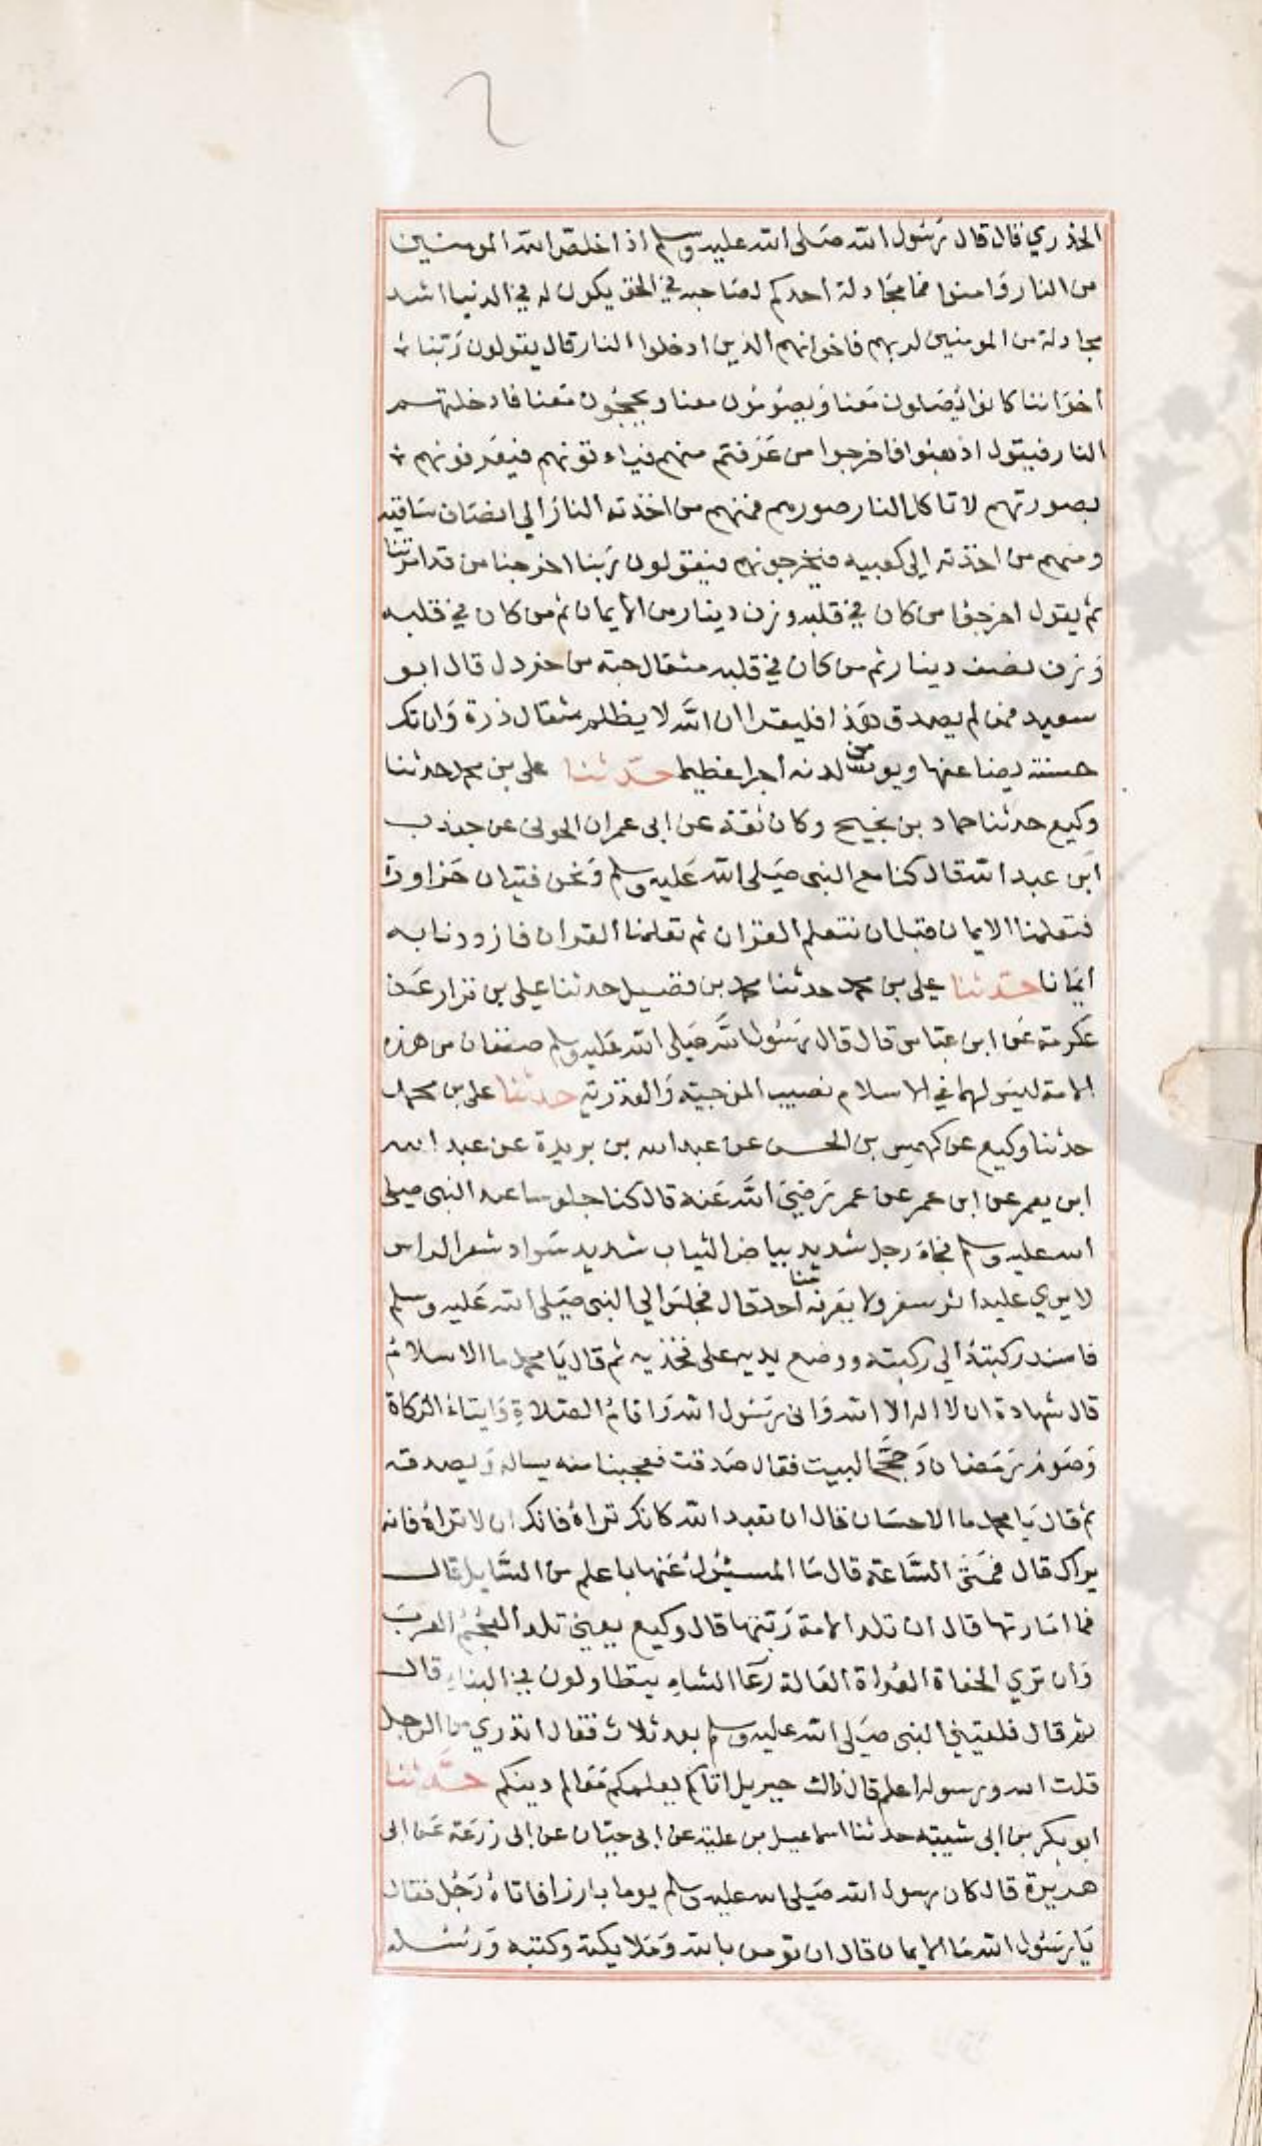 الخدري قال قال رسول الله صلى الله عليه وسلم اذا خلص الله المومنين
من النار وامنوا فما مجادلة احدكم لصاحبه في الحق يكون له في الدنيا اشد
مجادلة من المومنين لربهم في اخوانهم الذين ادخلوا النار قال يقولون ربنا
اخواننا كانوا يصلون معنا ويصومون معنا ويحجون معنا فادخلتهم
النار فيقول اذهبوا فاخرجوا من عرفتم منهم فياتونهم فيعرفونهم
بصورتهم لا تاكل النار صورهم فمنهم من اخذته النار الي انصاف ساقيه
ومنهم من اخذته الي كعبيه فيخرجونهم فيقولون ربنا اخرجنا من قد امرتنا
ثم يقول اخرجوا من كان في قلبه وزن دينار من الايمان ثم من كان في قلبه
وزن نصف دينار ثم من كان في قلبه مثقال حبة من خردل قال ابو
سعيد فمن لم يصدق هذا فليقرا ان الله لا يظلم مثقال ذرة وان تك
حسنة يضاعفها ويوت من لدنه أجرا عظيما حدثنا علي بن محمد حدثنا
وكيع حدثنا حماد بن نجيح وكان ثقة عن ابي عمران الجوني عن جندب
ابن عبد الله قال كنا مع النبي صلى الله عليه وسلم ونحن فتيان حزاورة
فتعلمنا الايمان قبل ان نتعلم القران ثم تعلمنا القران فازددنا به
ايمانا حدثنا علي بن محمد حدثنا محمد بن فضيل حدثنا علي بن نزار عن
عكرمة عن ابن عباس قال قال رسول الله صلى الله عليه وسلم صنفان من هذه
الامة ليس لهما في الاسلام نصيب المرجية والقدرية حدثنا علي بن محمد
حدثنا وكيع عن كهمس بن الحسن عن عبد الله بن بريدة عن عبد الله
ابن يعمر عن ابن عمر عن عمر رضي الله عنه قال كنا جلوسا عند النبي صلى
الله عليه وسلم فجاء رجل شديد بياض الثياب شديد سواد شعر الراس
لا يري عليه اثر سفر ولا يعرفه منا أحد قال فجلس الي النبي صلى الله عليه وسلم
فاسند ركبته الي ركبته ووضع يديه على فخذيه ثم قال يا محمد ما الاسلام
قال شهادة ان لا اله الا الله واني رسول الله واقام الصلاة وايتاء الزكاة
وصوم رمضان وحج البيت فقال صدقت فعجبنا منه يساله ويصدقه
ثم قال يا محمد ما الاحسان قال ان تعبد الله كانك تراه فانك ان لا تراه فانه
يراك قال فمتى الساعة قال ما المسئول عنها باعلم من السايل قال
فما امارتها قال ان تلد الامة ربتها قال وكيع يعني تلد العجم العرب
وان تري الحفاة العراة العالة رعا الشاء يتطاولون في البناء قال
ثم قال فلقيني النبي صلى الله عليه وسلم بعد ثلاث فقال اتدري من الرجل
قلت الله ورسوله اعلم قال ذاك جبريل اتاكم يعلمكم معالم دينكم حدثنا
ابو بكر بن ابي شيبة حدثنا اسماعيل بن علية عن ابي حيان عن ابي زرعة عن ابي
هريرة قال كان رسول الله صلى الله عليه وسلم يوما بارزا فاتاه رجل فقال
يا رسول الله ما الايمان قال ان تومن بالله وملايكته وكتبه ورسله